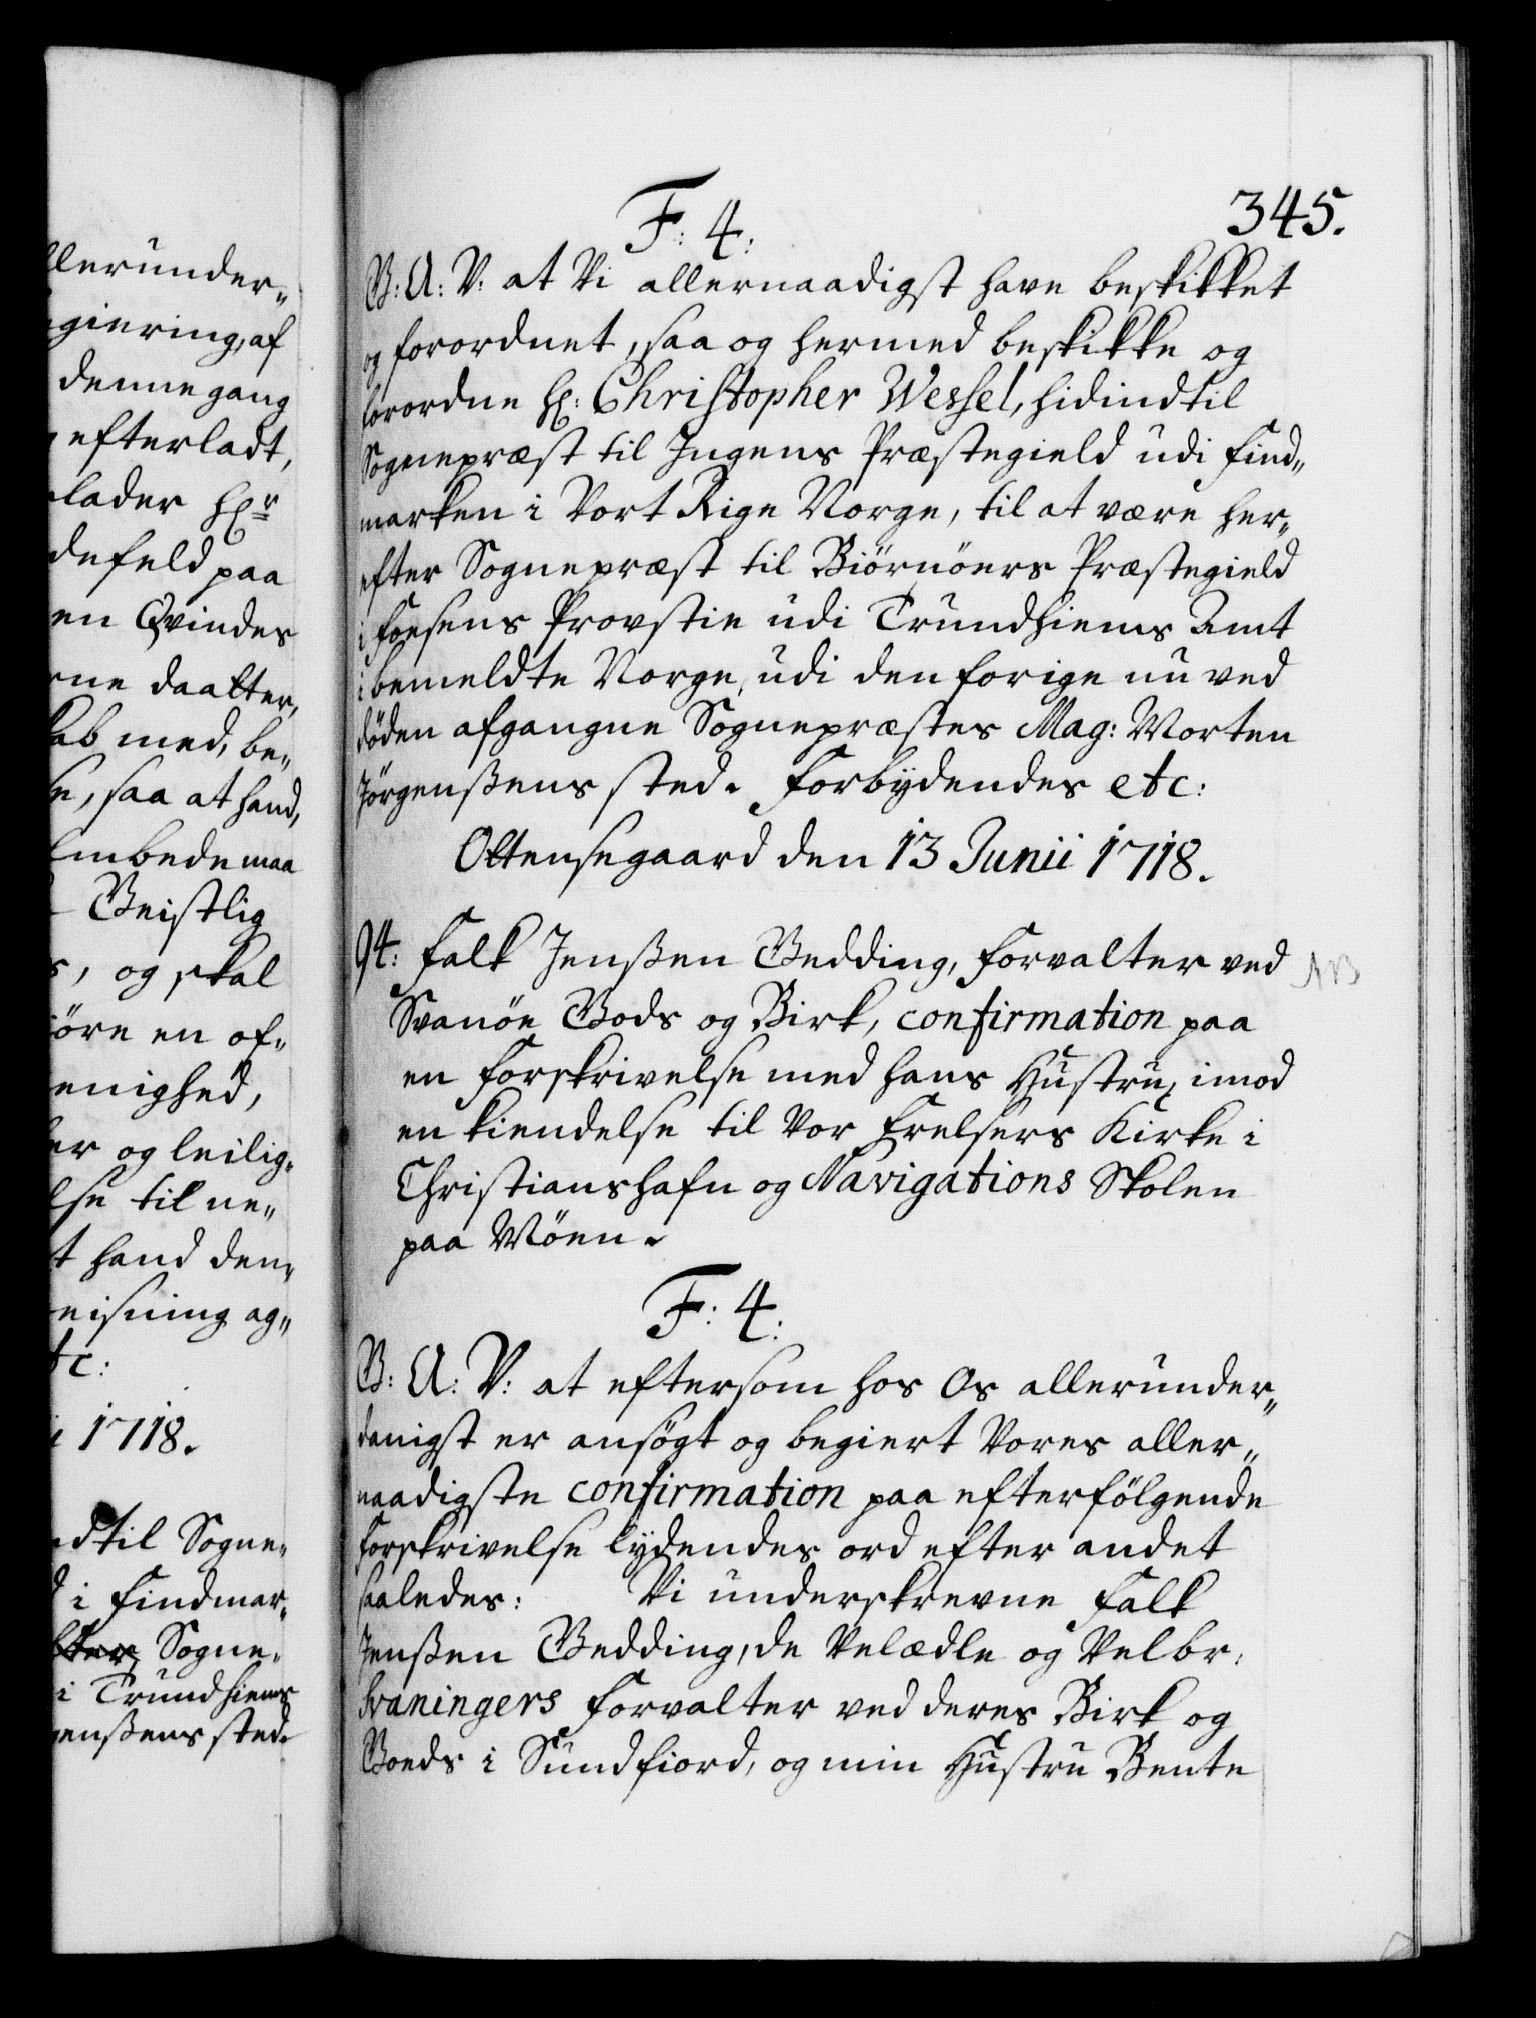 llerunder„
giering, af
denne gang
efterladt,
lader Hr
defeld paa
en Qvindes
ne daatter,
kab med, be„
se, saa at hand,
Embede maa
Geistlig
s, og skal
öre en of„
enighed,
er og leilig„
lse til ne„
t hand den„
eisning ag„
tc:
i 1718.
ndtil Sogne„
d i Findmar„
Sogne„
i Trundhiems
genßens sted.
345.
F: 4:
G: A: V: at Vi allernaadigst have beskikket
og forordnet, saa og hermed beskikke og
forordne Hr: Christopher Wessel, hidindtil
Sognepræst til Ingens Præstegield udi Find„
marken i Vort Rige Norge, til at være her„
efter Sognepræst til Biörnöers Præstegield
i Foesens Provstie udi Trundhiems Amt
i bemeldte Norge, udi den forige nu ved
döden afgangne Sognepræstes Mag: Morten
Jörgenßens sted. Forbydendes etc:
Ottensegaard den 13 Junii 1718.
94: Falk Jenßen Gedding, Forvalter ved
NB
Svanöe Gods og Birk, confirmation paa
en Forskrivelse med hans Hustru, imod
en kiendelse til Vor Frelsers Kirke i
Christianshafn og Navigations Skolen
paa Möen.
F: 4:
G: A: V: at eftersom hos Os allerunder„
danigst er ansögt og begiert Vores aller„
naadigste confirmation paa efterfölgende
Forskrivelse lydendes ord efter andet
saaledes: Vi underskrevne Falk
Jenßen Gedding, de Velædle og Velbr:
Svaningers Forvalter ved deres Birk og
Goeds i Sundfiord, og min Hustru Bente